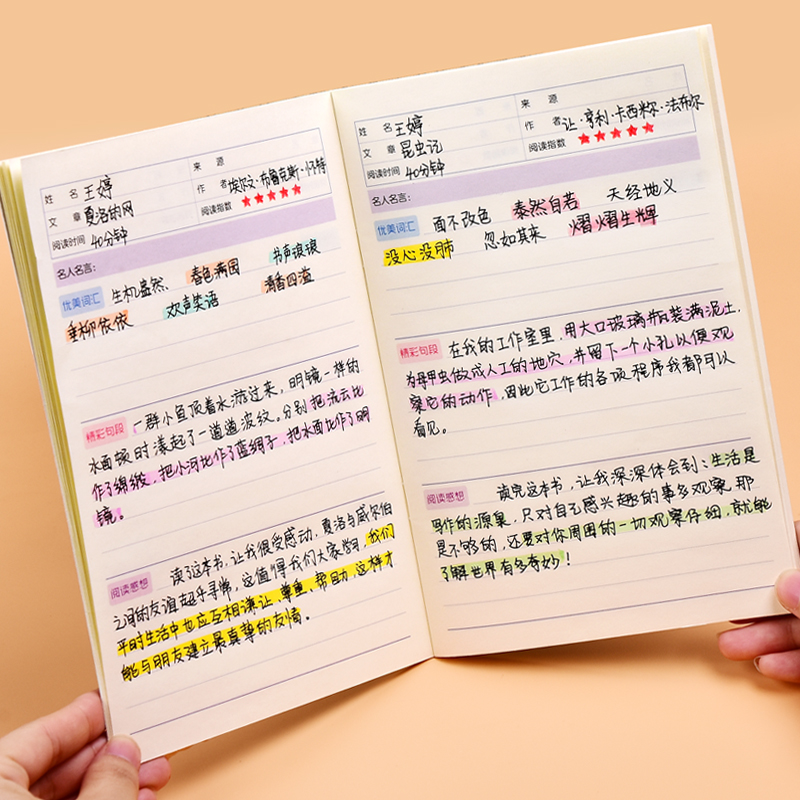 姓 名 王婷
来 源
文 章 夏洛的网
作 者 埃尔文·布鲁克斯·怀特
阅读时间 40分钟
阅读指数 ★★★★★
名人名言：
优美词汇 生机盎然、 春色满园 书声琅琅
垂柳依依 欢声笑语 清香四溢
精彩句段 一群小鱼顶着水游过来，明镜一样的
水面顿时漾起了一道道波纹。分别把流云比
作了绵缎，把小河比作了蓝绸子，把水面比作了明
镜。
阅读感想 读了这本书，让我很受感动，夏洛与威尔伯
之间的友谊超乎寻常，这值得我们大家学习，我们
平时生活中也应互相谦让、尊重、帮助，这样才
能与朋友建立最真挚的友情。
姓 名 王婷
来 源
文 章 昆虫记
作 者 让·亨利·卡西米尔·法布尔
阅读时间 40分钟
阅读指数 ★★★★★
名人名言：
优美词汇 面不改色 泰然自若 天经地义
没心没肺 忽如其来 熠熠生辉
精彩句段 在我的工作室里，用大口玻璃瓶装满泥土，
为母甲虫做成人工的地穴，并留下一个小孔以便观
察它的动作，因此它工作的各项程序我都可以
看见。
阅读感想 读完这本书，让我深深体会到：生活是
写作的源泉，只对自己感兴趣的事多观察，那
是不够的，还要对你周围的一切观察仔细，就能
了解世界有多奇妙！